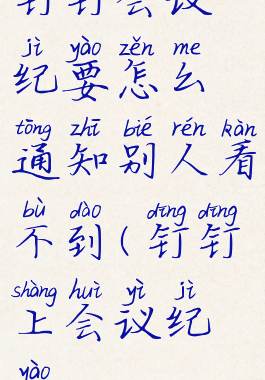 钉钉会议
jì yào zěn me
纪要怎么
tōng zhī bié rén kàn
通知别人看
bù dào dīng dīng
不到(钉钉
shàng huì yì jì
上会议纪
yào